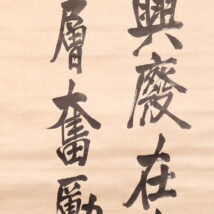 興廢在
層奮勵